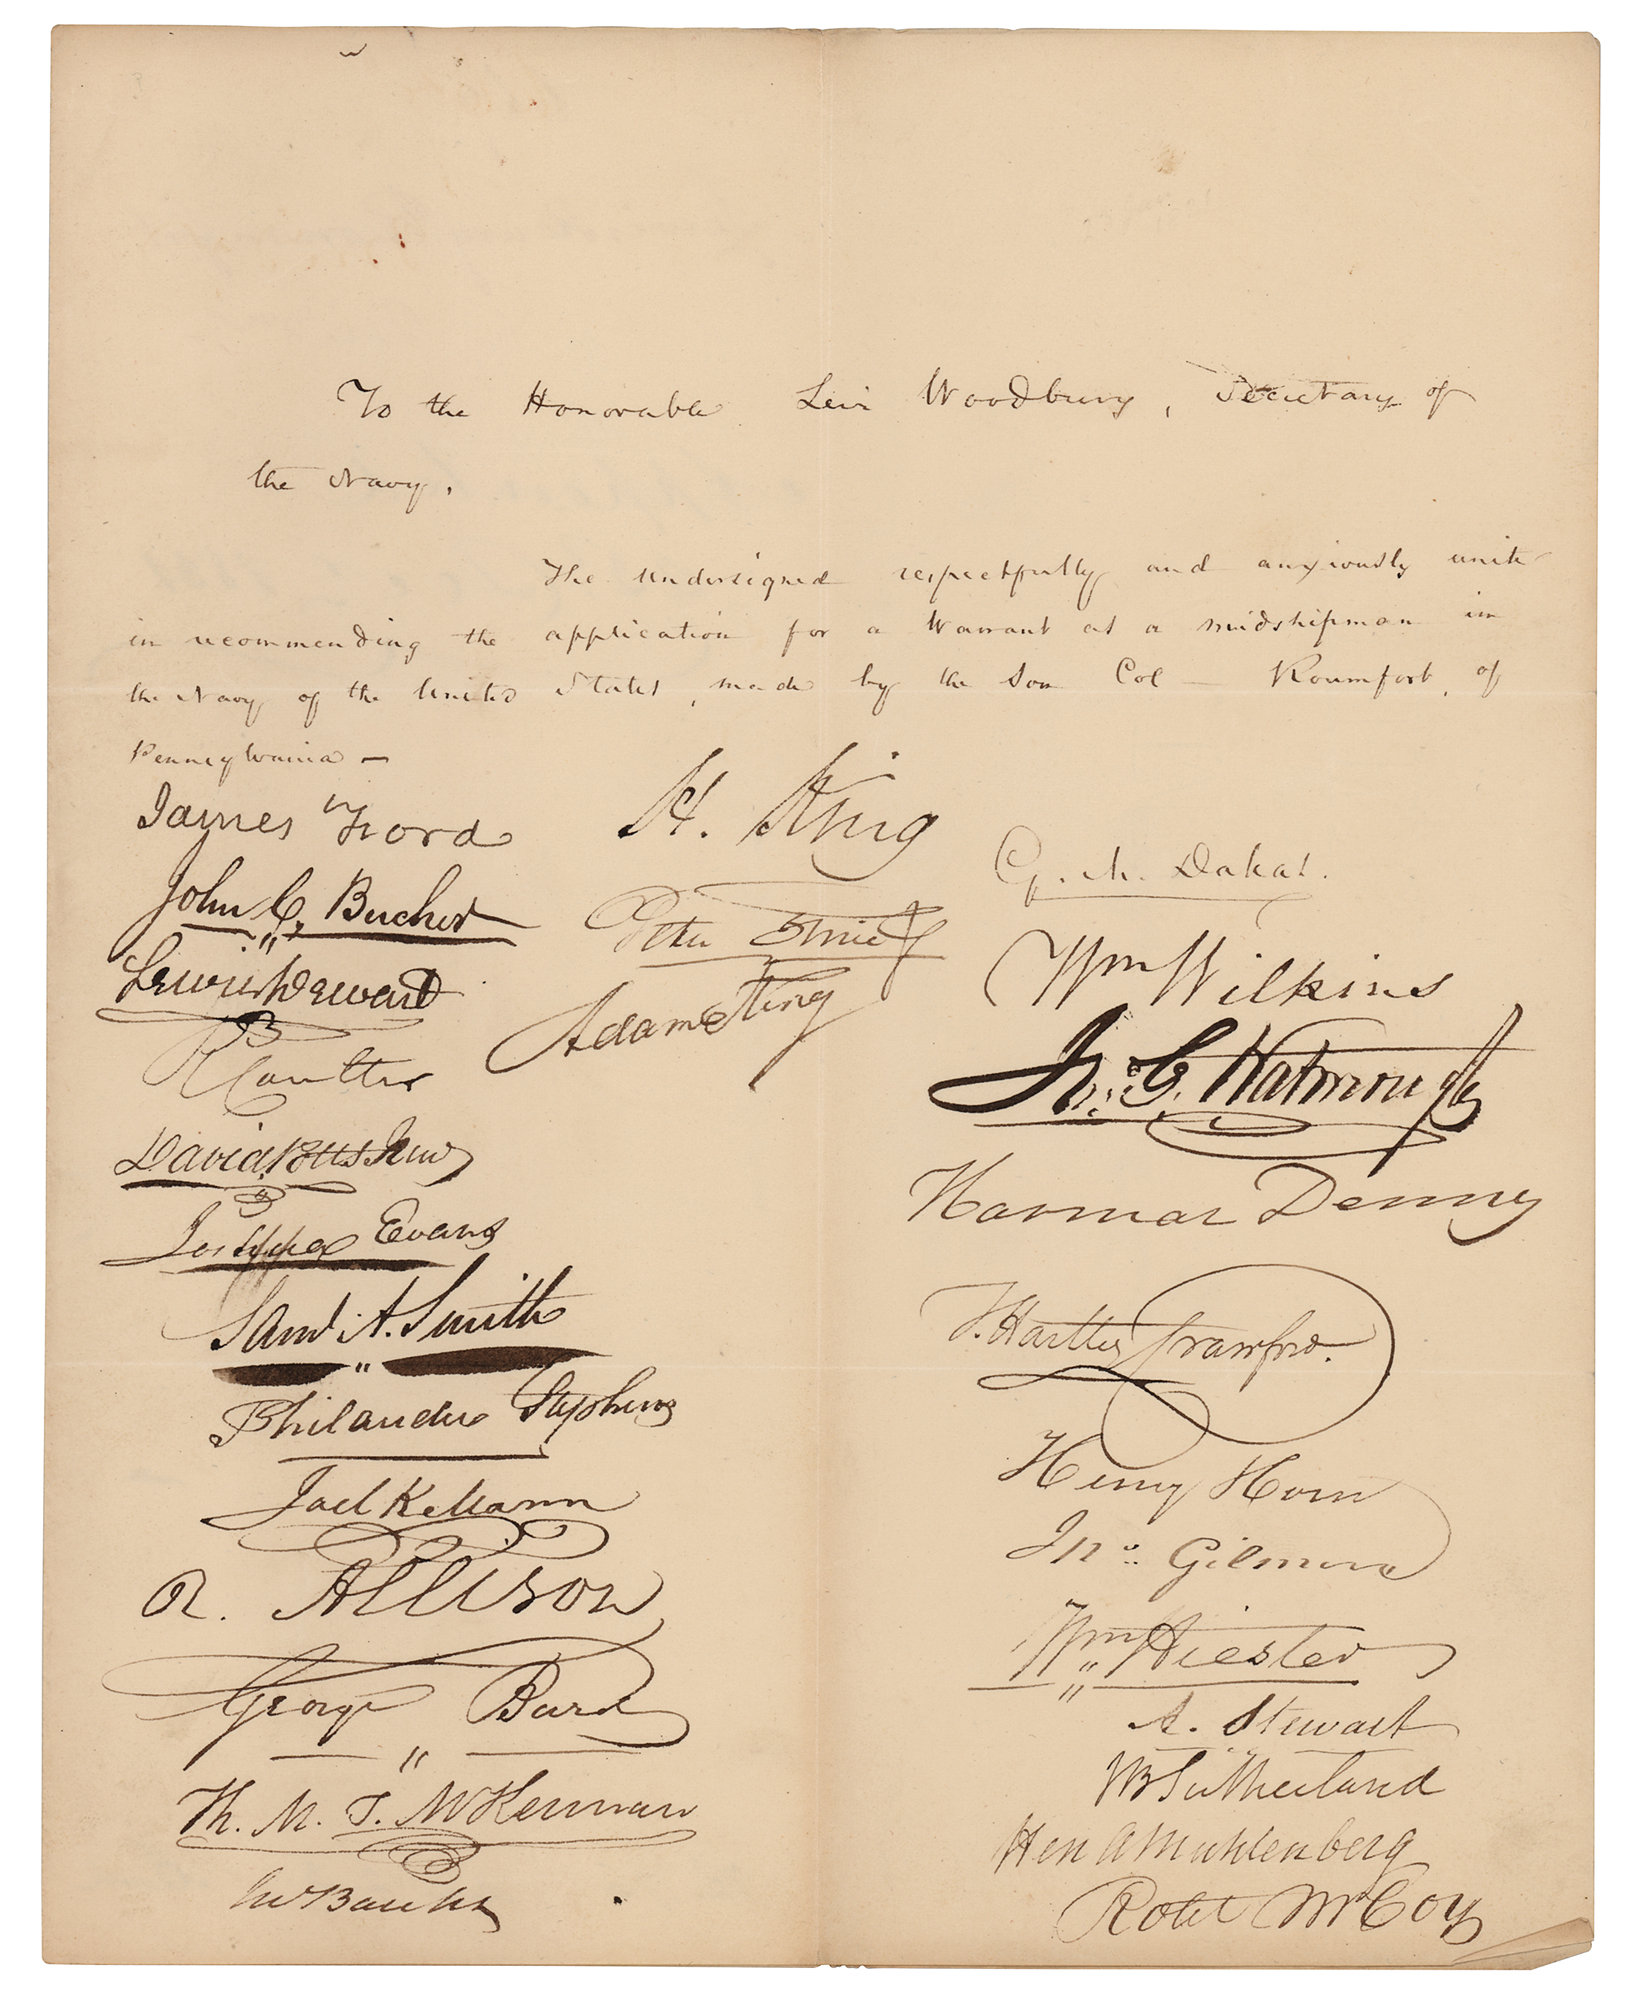 To the Honorable Levi Woodbury, Secretary of
the Navy.
The undersigned respectfully and anxiously unite
in recommending the application for a Warrant as a midshipman in
the Navy of the United States, made by the son Col — Roumfort, of
Pennsylvania —
James Ford
John C. Bucher
Lewis Dewart
R Coulter
David Potts Jun
Joshua Evans
Saml A. Smith
Philander Stephens
Joel K Mann
R. Allison
George Burd
Th. M. T. McKennan
Jno Banks
H. King
Peter Ihrie Jr
Adam King
G. M. Dallas.
Wm Wilkins
Jno. G. Watmough
Harmar Denny
T. Hartley Crawford.
Henry Horn
Jno. Gilmore
Wm Hiester
A. Stewart
JB Sutherland
Hen A Muhlenberg
Robt McCoy